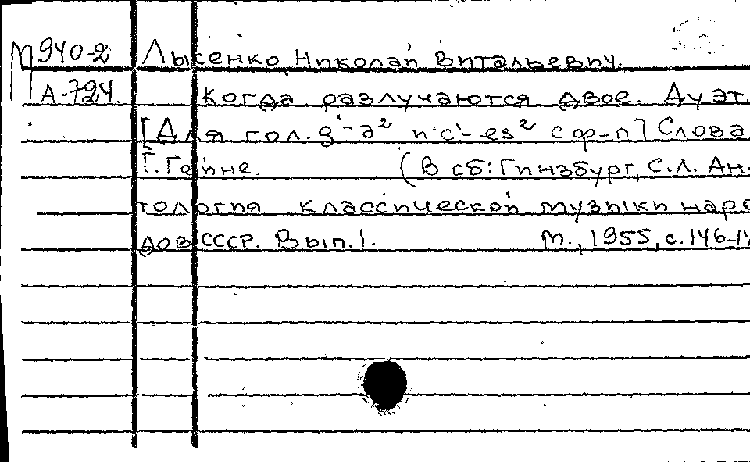 М940-2 Лысенко, Николай Витальевич.
А-724 Когда разлучаются двое. Дуэт.
[Для гол. g¹-a² и c¹-es² с ф-п] Слова
Г. Гейне. (В сб: Гинзбург, С.Л. Ан-
тология классической музыки наро
дов СССР. Вып. 1. М., 1955, с. 146-